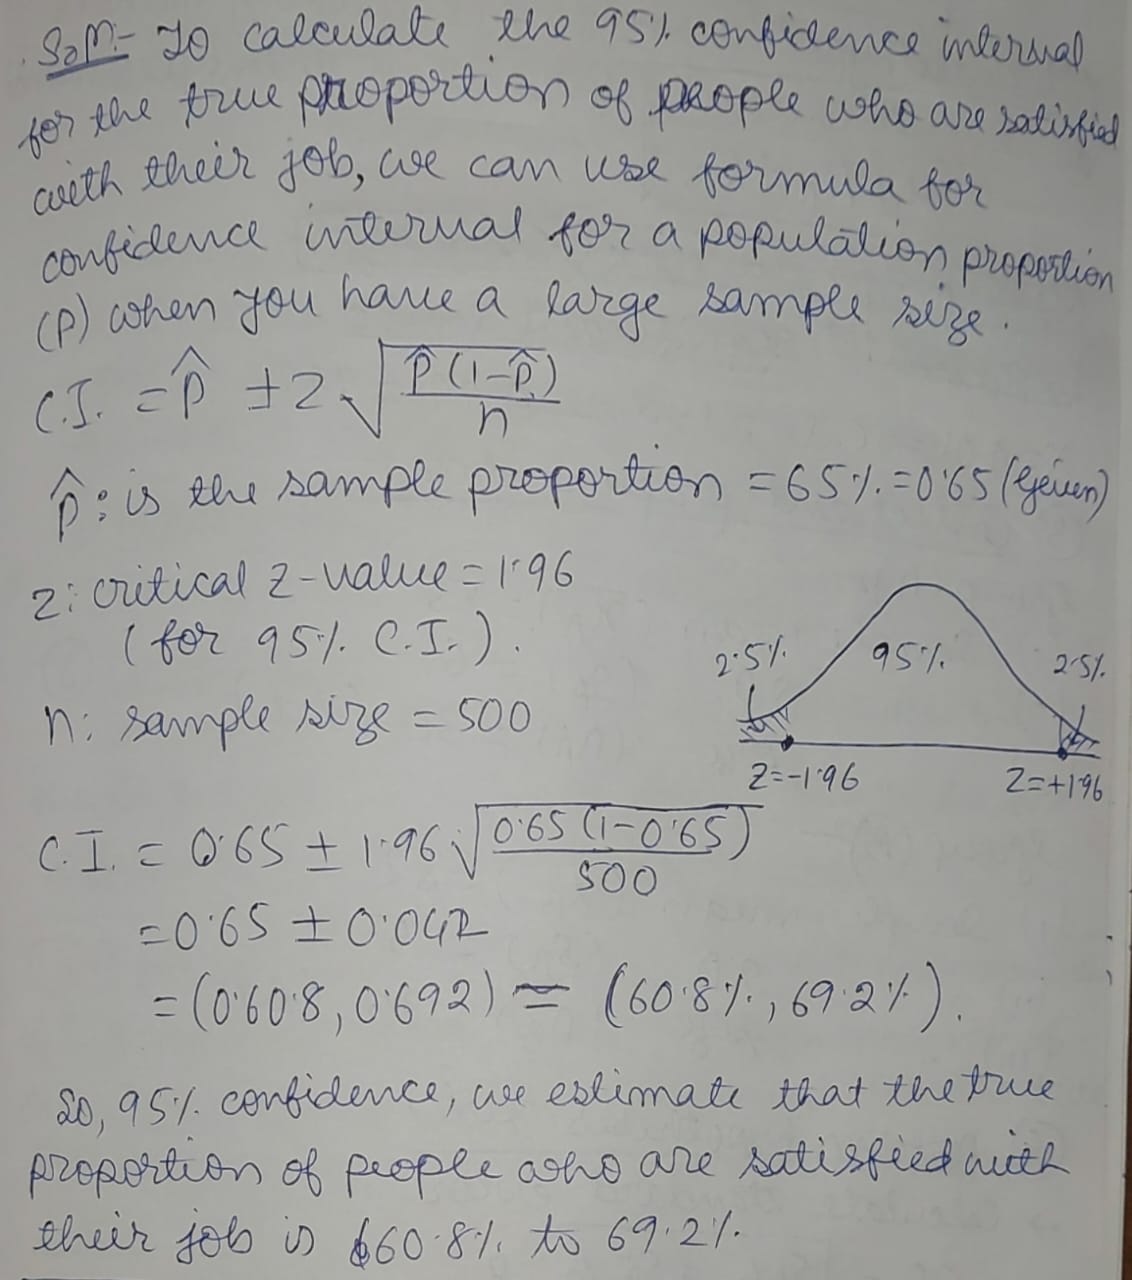 Soln:- To calculate the 95% confidence interval
for the true proportion of people who are satisfied
with their job, we can use formula for
confidence interval for a population proportion
(P) when you have a large sample size.
C.I. = p̂ ± z √(p̂(1-p̂)/n)
p̂: is the sample proportion = 65% = 0.65 (Given)
z: critical z-value = 1.96
(for 95% C.I.).
2.5% 95% 2.5%
n: sample size = 500
Z=-1.96 Z=+1.96
C.I. = 0.65 ± 1.96 √(0.65(1-0.65)/500)
= 0.65 ± 0.042
= (0.608, 0.692) = (60.8%, 69.2%).
So, 95% confidence, we estimate that the true
proportion of people who are satisfied with
their job is 60.8% to 69.2%.